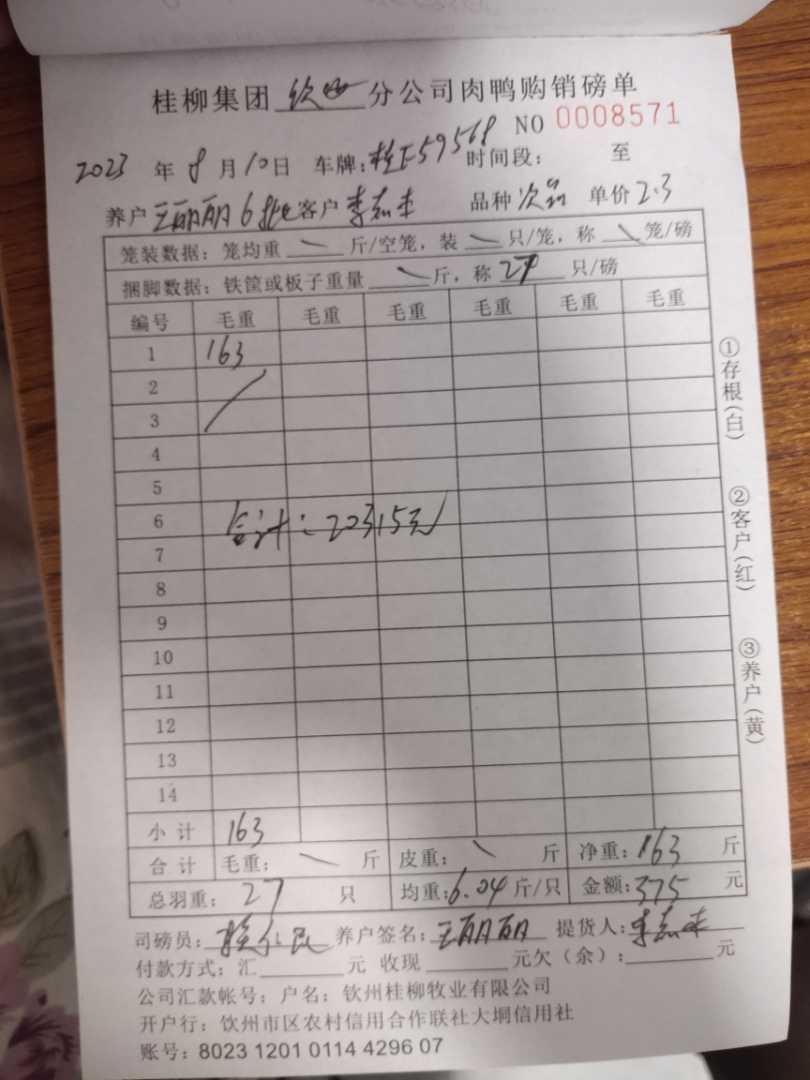 桂柳集团 钦州 分公司肉鸭购销磅单
NO 0008571
2023 年 8 月 10 日 车牌：桂E59568 时间段： 至
养户 王丽丽6批 客户 李志来 品种 次品 单价 2.3
笼装数据：笼均重 斤/空笼，装 只/笼，称 笼/磅
捆脚数据：铁筐或板子重量 斤，称 27 只/磅
编号 毛重 毛重 毛重 毛重 毛重 毛重
1 163
2
3
4
5
6 合计：20315元
7
8
9
10
11
12
13
14
小计 163
合计 毛重： 斤 皮重： 斤 净重：163 斤
总羽重： 27 只 均重：6.04 斤/只 金额：375 元
司磅员： 养户签名：王丽丽 提货人：李志来
付款方式：汇 元 收现 元欠（余）： 元
公司汇款帐号：户名：钦州桂柳牧业有限公司
开户行：饮州市区农村信用合作联社大垌信用社
账号：8023 1201 0114 4296 07
①存根（白）
②客户（红）
③养户（黄）